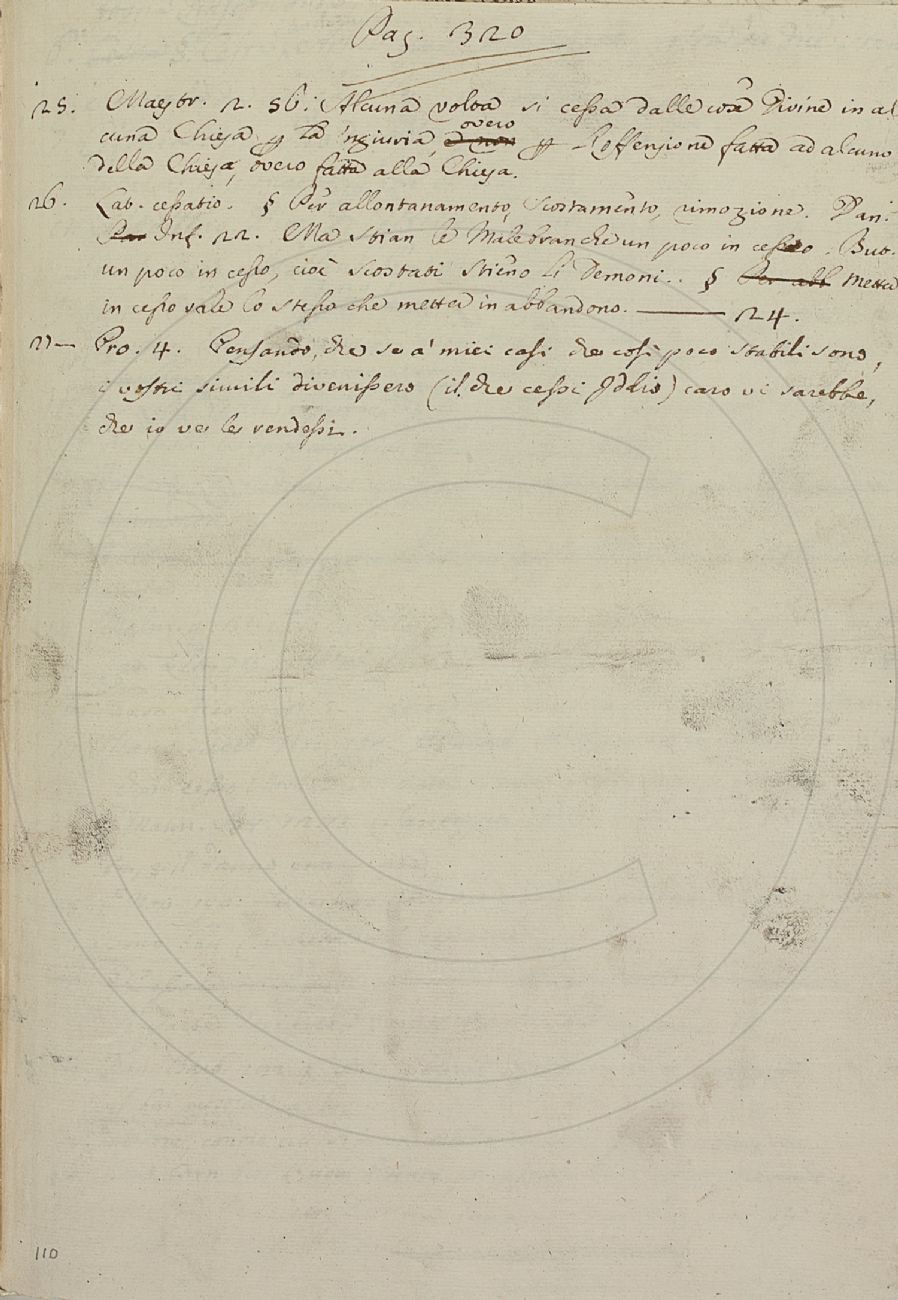 Pag. 320
25. Maestr. 2. 56: Alcuna volta si cessa dalle cose Divine in al
cuna Chiesa p la 'ngiuria, overo p l'offensione fatta ad alcuno
della Chiesa, overo fatta alla Chiesa.
26. Lab. cessatio. § Per allontanamento, scostamento, rimozione. Dan.
Par Inf. 22. Ma stian le Malebranche un poco in cesso. But.
un poco in cesso, cioè scostati stieno li Demoni.. § Per abb Metter
in cesso vale lo stesso che metter in abbandono. —— 24.
27— Pro. 4. Pensando, che se a' miei casi che così poco stabili sono,
i vostri simili divenissero (il che cessi Iddio) caro vi sarebbe,
che io ve le rendessi.
110